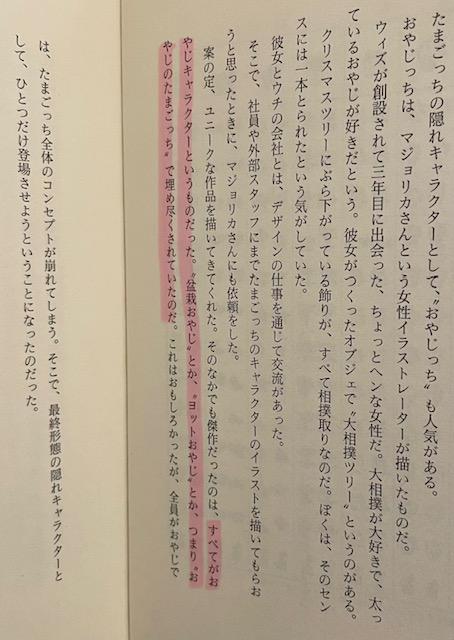 たまごっちの隠れキャラクターとして、〝おやじっち〟も人気がある。
おやじっちは、マジョリカさんという女性イラストレーターが描いたものだ。
ウィズが創設されて三年目に出会った、ちょっとヘンな女性だ。大相撲が大好きで、太っ
ているおやじが好きだという。彼女がつくったオブジェで〝大相撲ツリー〟というのがある。
クリスマスツリーにぶら下がっている飾りが、すべて相撲取りなのだ。ぼくは、そのセン
スには一本とられたという気がしていた。
彼女とウチの会社とは、デザインの仕事を通じて交流があった。
そこで、社員や外部スタッフにまでたまごっちのキャラクターのイラストを描いてもらお
うと思ったときに、マジョリカさんにも依頼をした。
案の定、ユニークな作品を描いてきてくれた。そのなかでも傑作だったのは、すべてがお
やじキャラクターというものだった。〝盆栽おやじ〟とか、〝ヨットおやじ〟とか、つまり〝お
やじのたまごっち〟で埋め尽くされていたのだ。これはおもしろかったが、全員がおやじで
は、たまごっち全体のコンセプトが崩れてしまう。そこで、最終形態の隠れキャラクターと
して、ひとつだけ登場させようということになったのだった。